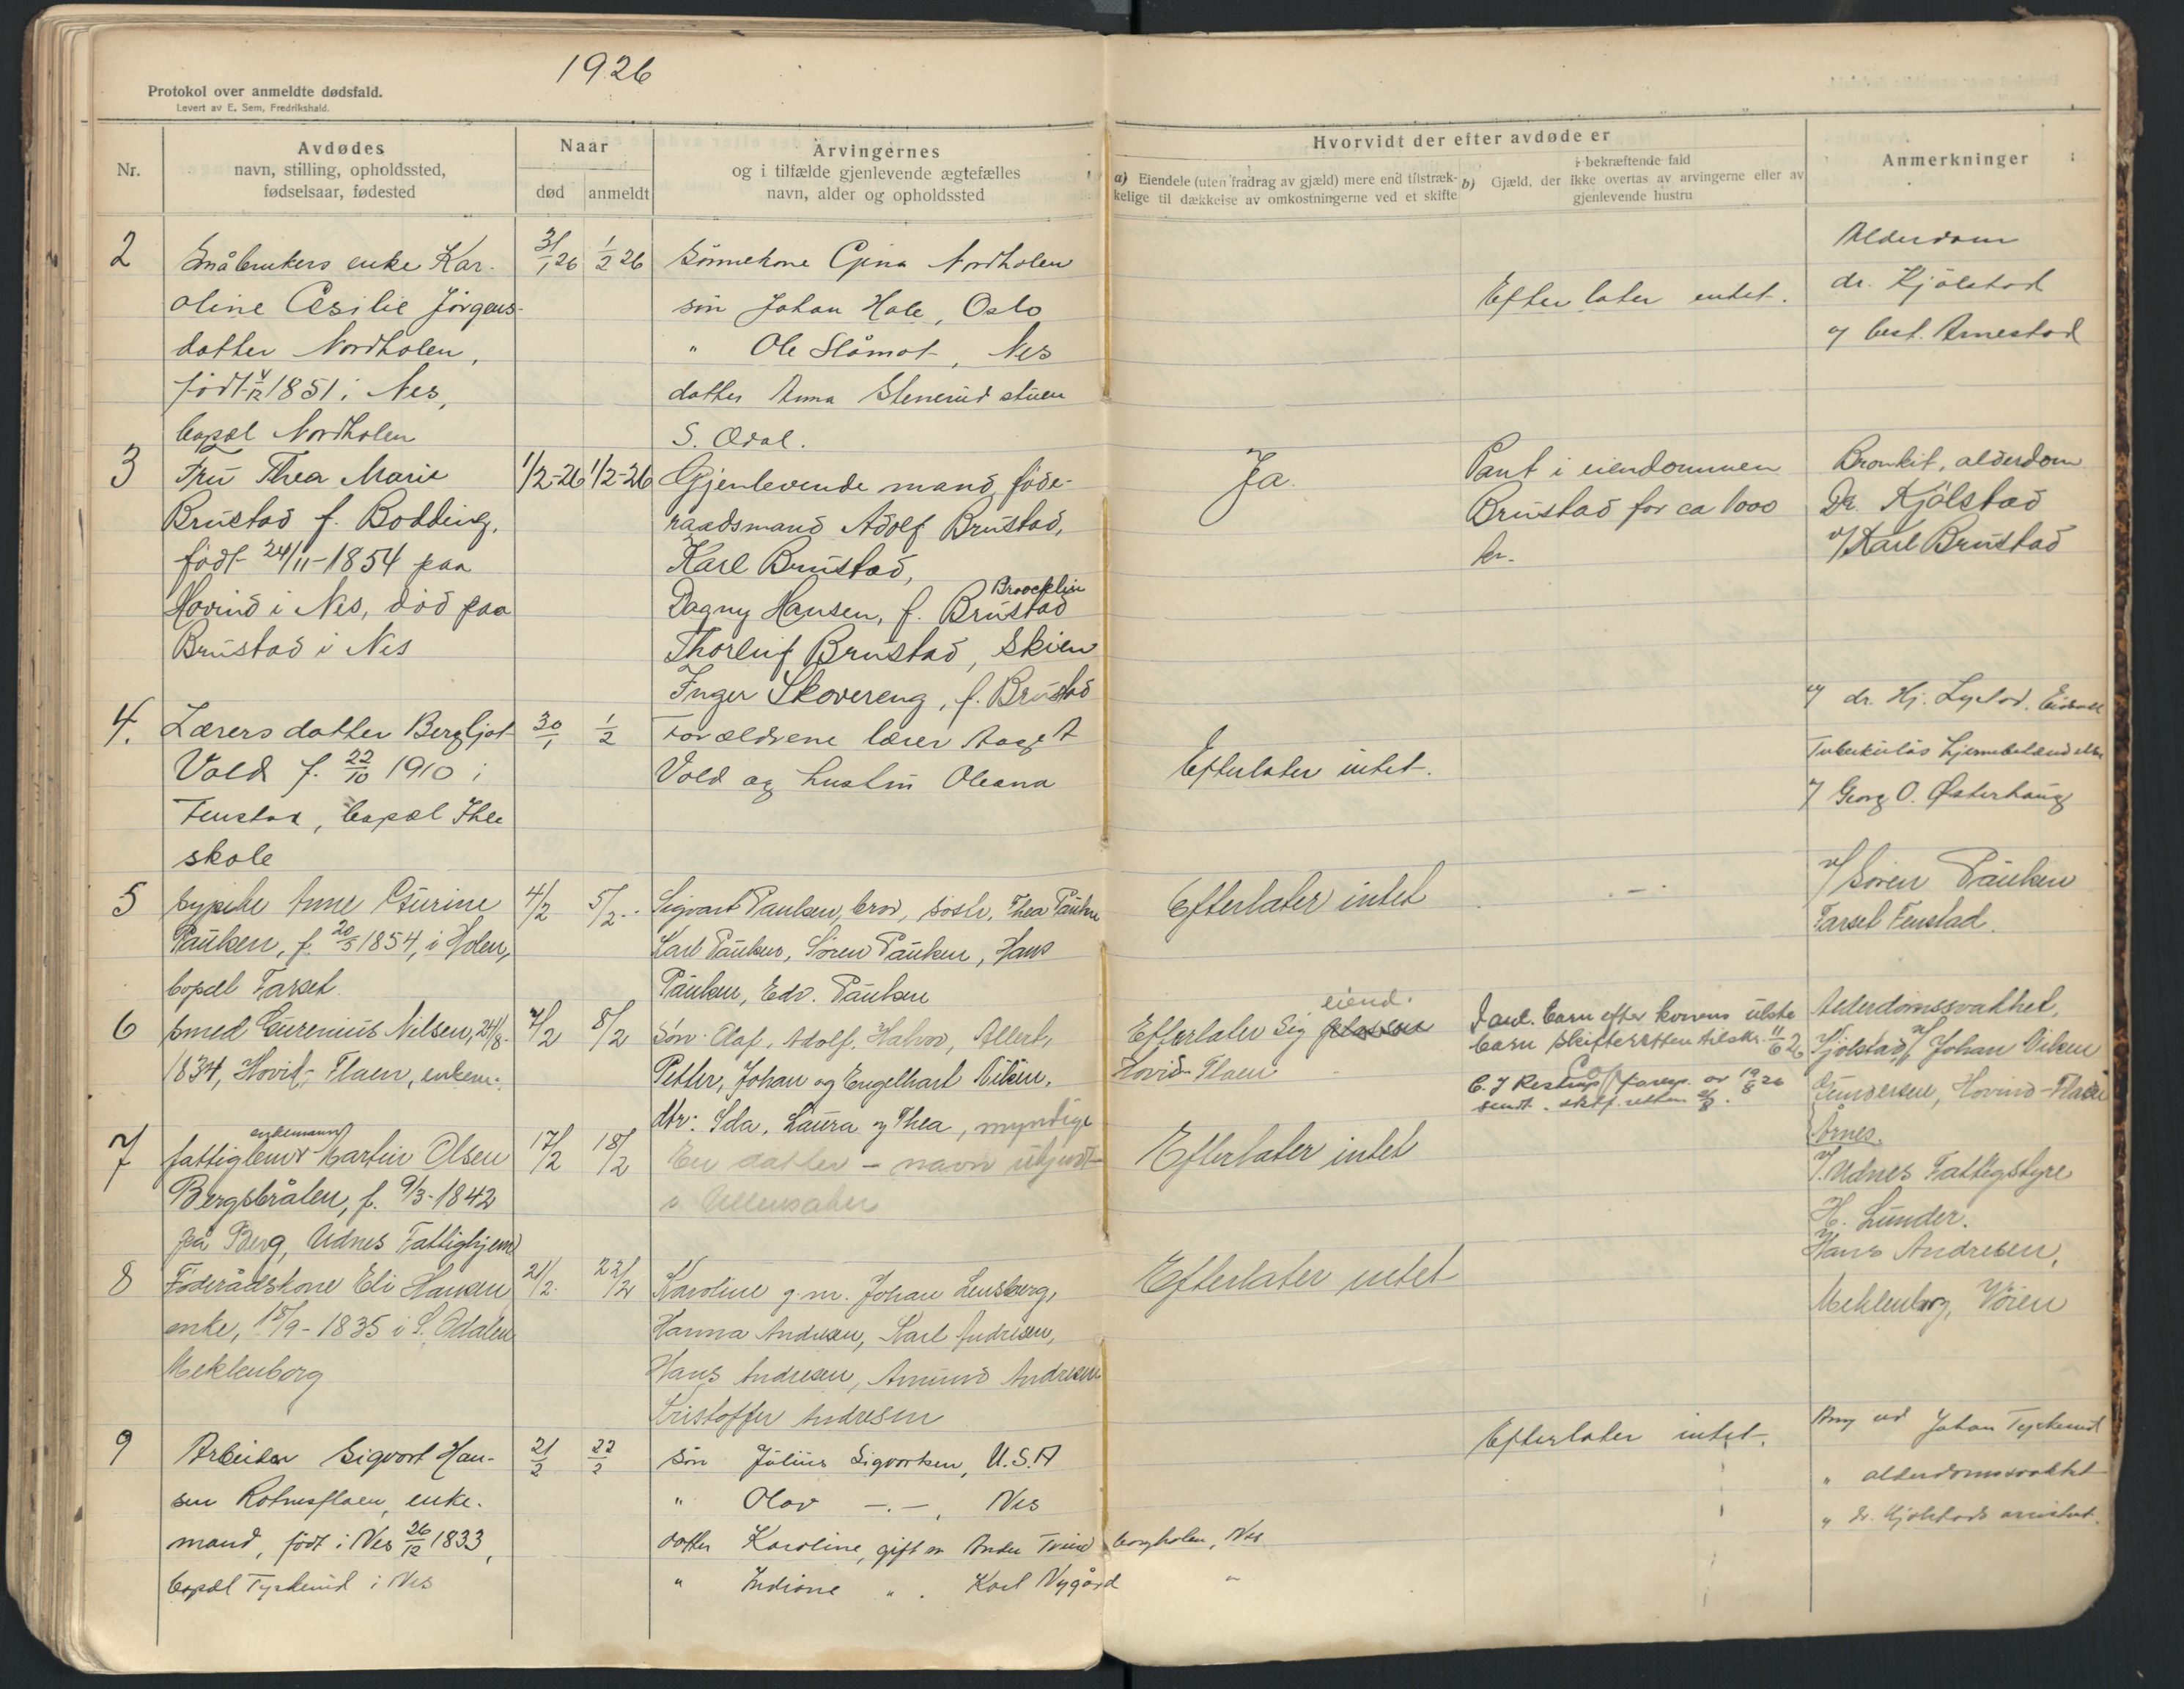 1926
Protokol over anmeldte dødsfald.
Levert av E. Sem, Fredrikshald.
Nr.
Avdødes
navn, stilling, opholdssted,
fødselsaar, fødested
Naar
død
anmeldt
Arvingernes
og i tilfælde gjenlevende ægtefælles
navn, alder og opholdssted
Hvorvidt der efter avdøde er
a) Eiendele (uten fradrag av gjæld) mere end tilstræk-
kelige til dækkelse av omkostningerne ved et skifte
i bekræftende fald
b) Gjæld, der ikke overtas av arvingerne eller av
gjenlevende hustru
Anmerkninger
2
Småbrukers enke Kar-
oline Cesilie Jörgens-
datter Nordholen,
født 4/12 1851 i Nes,
bopæl Nordholen
31/1 26
1/2 26
Sönnekone Gina Nordholen
sön Johan Hole, Oslo
" Ole Slåmot, Nes
datter Anna Stenerud stuen
S. Odal.
Efterlater entet.
Alderdom
dr. Kjölstad
v/ best. Arnestad
3
Fru Thea Marie
Brustad f. Bodding,
født 24/11-1854 paa
Hovind i Nes, död paa
Brustad i Nes
1/2-26
1/2-26
Gjenlevende mand föde-
raadsmand Adolf Brustad,
Karl Brustad,
Broocklin
Dagny Hansen, f. Brustad
Thorleif Brustad, Skien
Inger Skovereng, f. Brustad
Ja.
Pant i eiendommen
Brustad for ca 1000
kr.
Bronkit, alderdom
Dr. Kjölstad
v/ Karl Brustad
4.
Lærers datter Bergljot
Vold f. 22/10 1910 i
Fenstad, bopæl Ihle
skole
30/1
1/2
Forældrene lærer Aage A
Vold og hustru Oleana
Efterlater intet.
v/ dr. Hj. Lystad. Eidsvoll
Tuberkuløs hjernebetændelse
v/ Georg O. Østerhaug
5
bypike Anne Gurine
Paulsen, f. 20/5 1854, i Holen,
bopæl Farset.
4/2
5/2
Sigvart Paulsen, bror, søstr. Thea Paulsen
Karl Paulsen, Søren Paulsen, Hans
Paulsen, Edv. Paulsen
Efterlater intet
- . - .
v/ Søren Paulsen
Farset Fenstad.
6
smed Gurenius Nilsen, 24/8-
1834, Hovid-Flaen, enkem.
7/2
8/2
Søn: Olaf, Adolf, Halvor, Albert,
Petter, Johan og Engelhart Viken,
dtr: Ida, Laura og Thea, myndige
eiend.
Efterlater sig plassen
Hovid-Flaen
barn efter konens
barn Skifteretten tilskr. 11/6 26
C. J foresp. av 19/8 26
sendt skif.retten
Alderdomssvakhet,
Kjolstad, v/ Johan Viken
Gundersen, Hovind-Flaen
Årnes.
7
enkemann
fattiglem Martin Olsen
Bergsbråten, f. 9/3-1842
på Berg, Udnes Fattighjem
17/2
18/2
En datter - navn ukjendt
i Ullensaker
Efterlater intet
v/ Udnes Fattigstyre
H. Lunder.
8
Föderådskone Eli Hansen
enke, 15/9-1835 i S. Odalen
Meklenborg
21/2.
22/2
Karoline g.m. Johan Lensberg,
Hanna Andresen, Karl Andresen,
Hans Andresen, Amund Andresen
Kristoffer Andresen
Efterlater intet
v/ Hans Andresen,
Meklenborg, Vören
9
Arbeider Sigvort Han-
sen Rotnesflaen, enke-
mand, født i Nes 26/12 1833,
bopæl Tyskerud i Nes
21/2
22/2
Sön Julius Sigvortsen, U.S.A
" Olav -.-, Nes
datter Karoline, gift m Anders Tveid borgholen, Nes
" Indiane " . Karl Nygård "
Efterlater intet.
Anm ved Johan Tyskerud
" alderdomssvakhet
" dr. Kjølstads assistent.